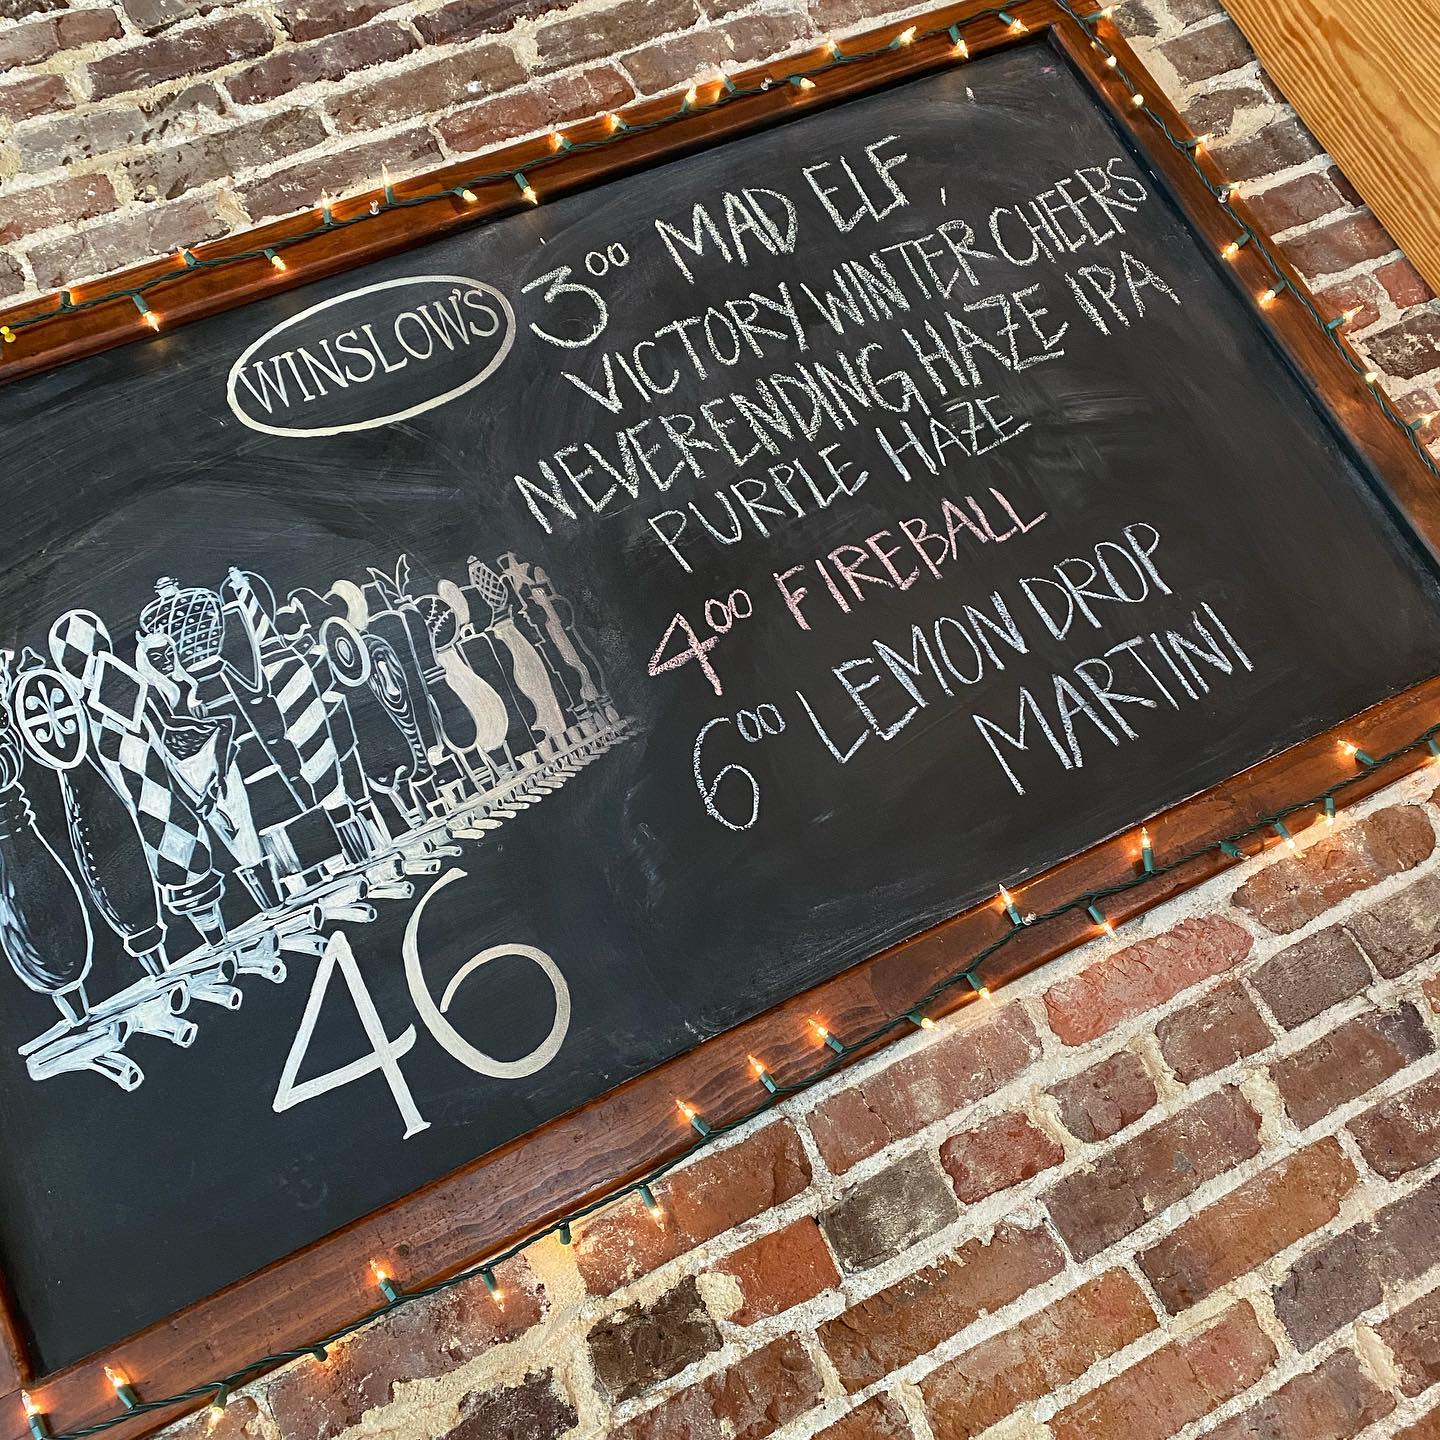 WINSLOW'S
3⁰⁰ MAD ELF,
VICTORY WINTER CHEERS
NEVERENDING HAZE IPA
PURPLE HAZE
4⁰⁰ FIREBALL
6⁰⁰ LEMON DROP
MARTINI
46